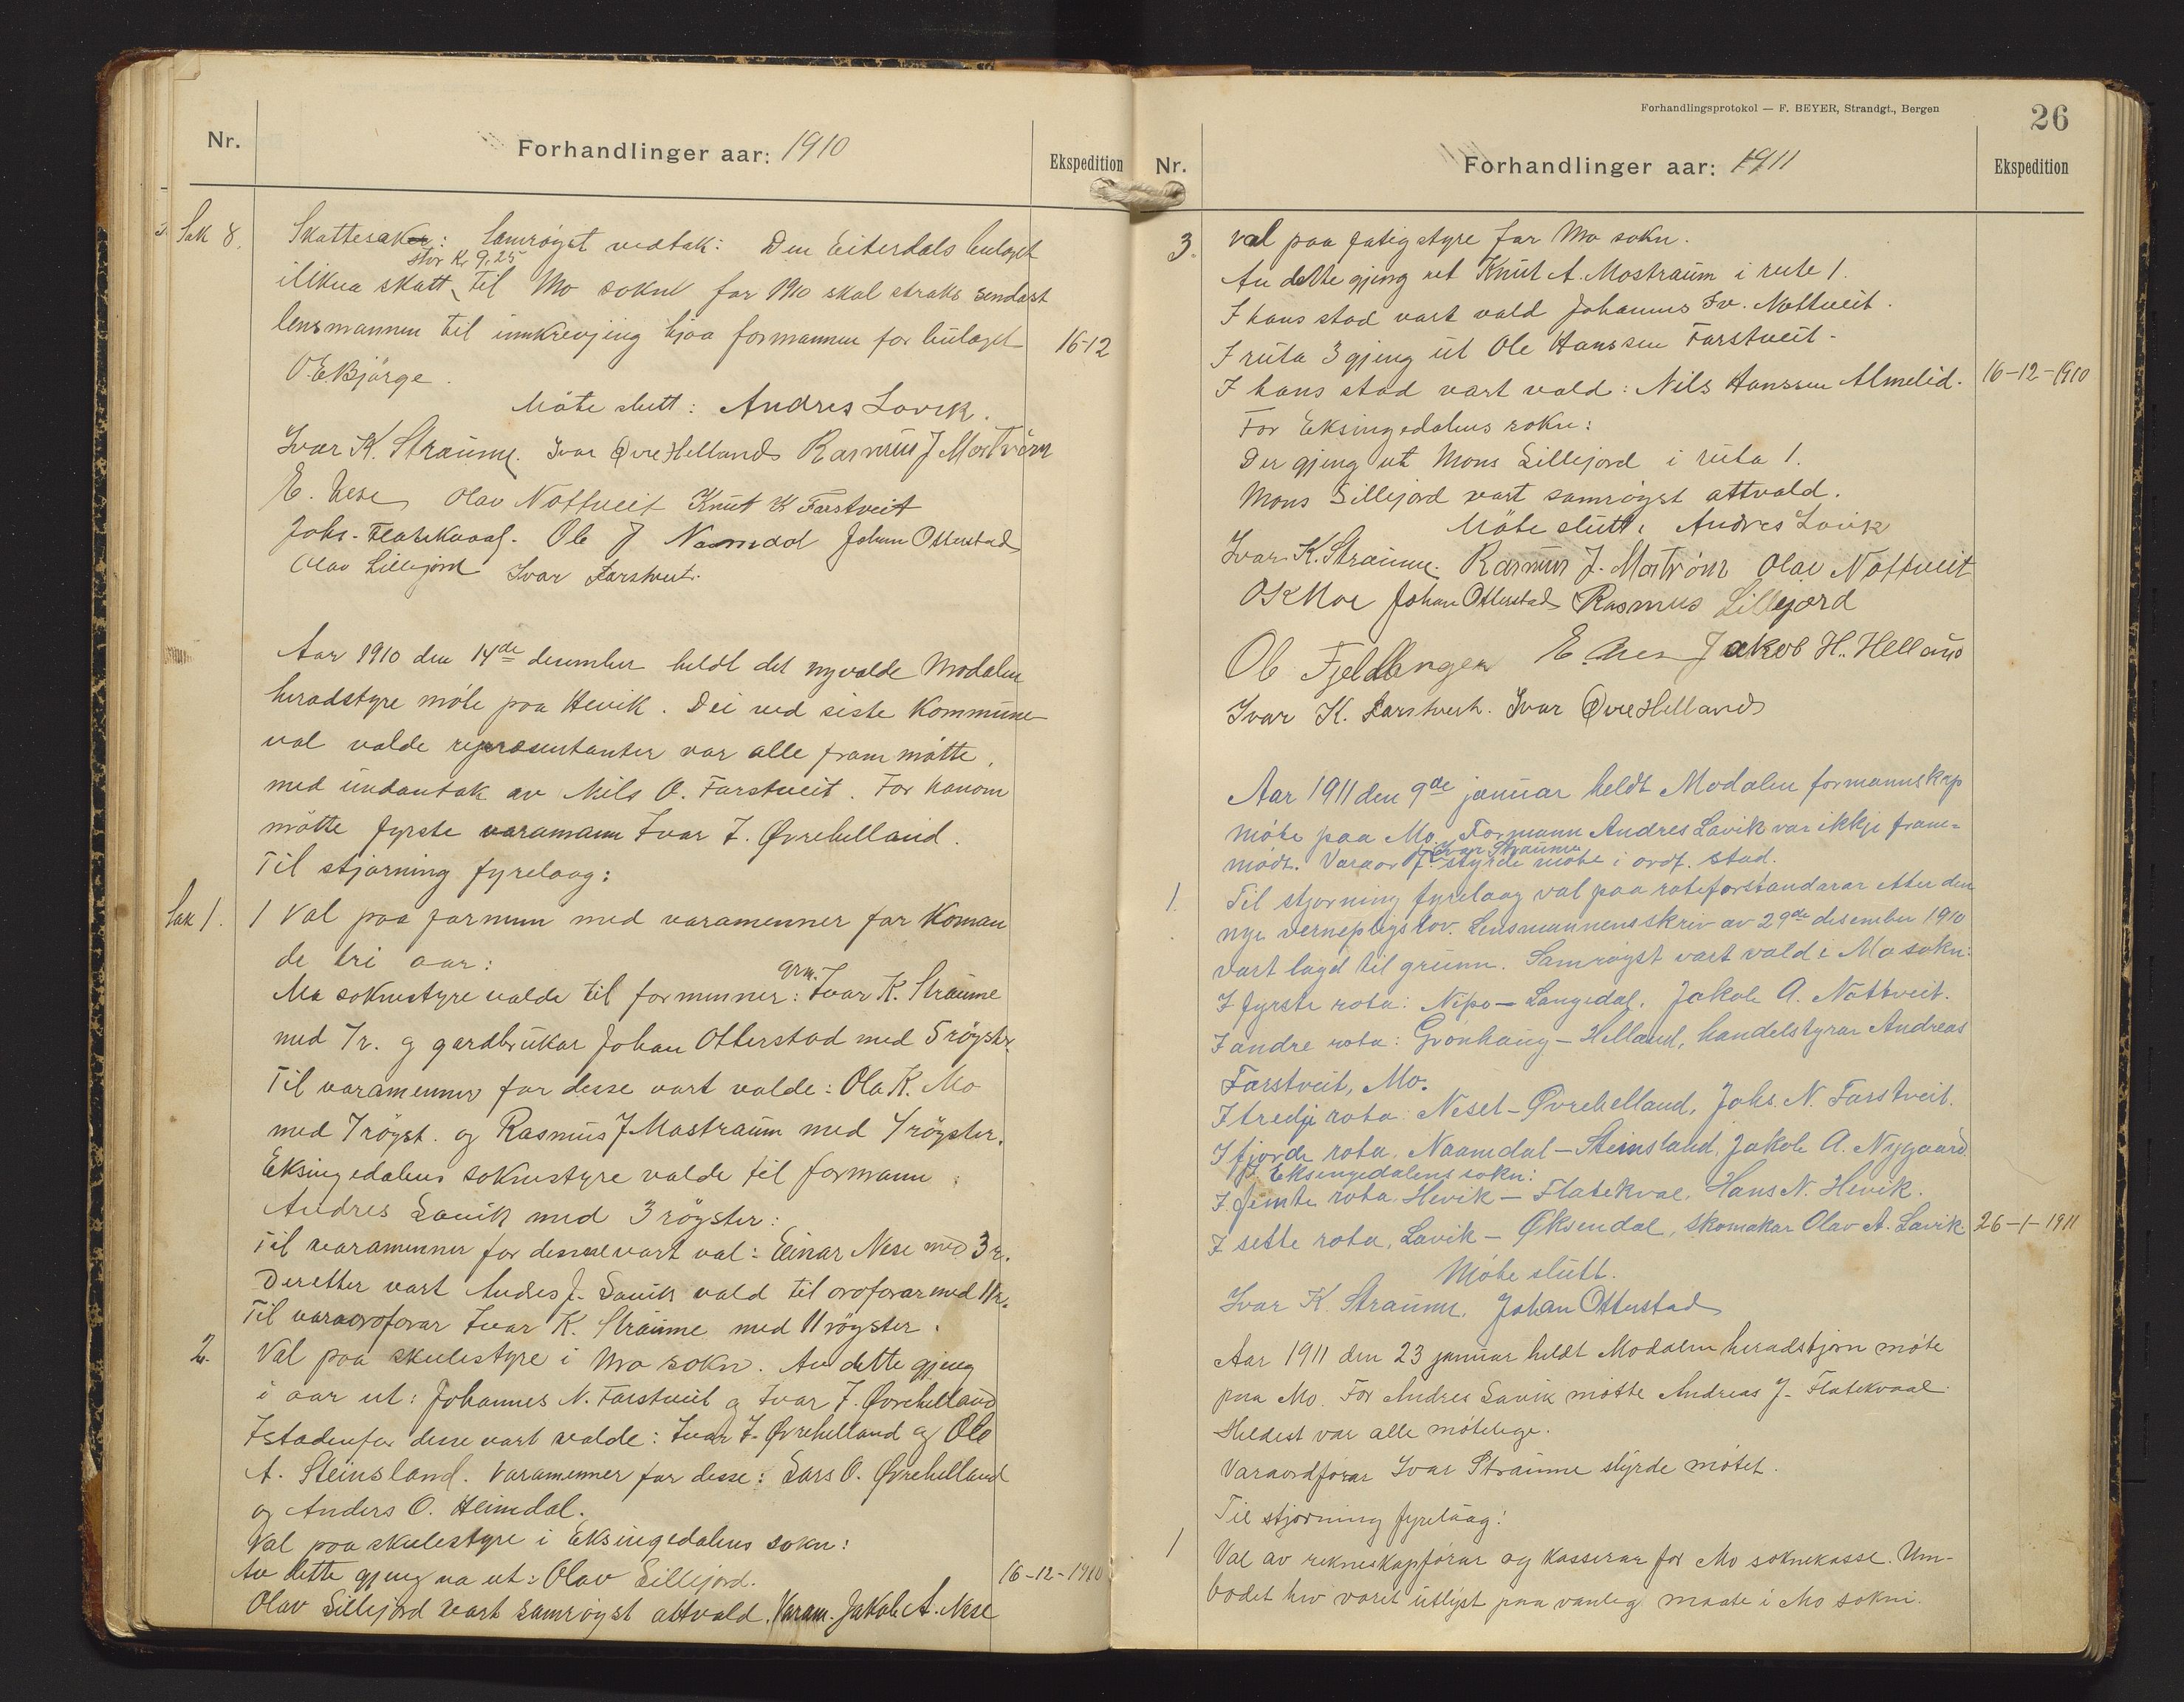 Nr.
Forhandlinger aar: 1910
Ekspedition
Sak 8. Skattesaker: Samrøyst vedtak: Den Eiterdals bulaget
stor Kr 9,25
ilikna skatt til Mo sokn for 1910 skal straks sendast
lensmannen til innkrevjing hjaa formannen for bulaget 16-12
O. E. Bjørge.
Møte slutt: Andres Lavik.
Ivar K. Straume. Ivar Øvre Helland Rasmus J Mostrøm
E. Nese Olav Nottveit Knut K Farstveit
Johs. Flatekvaal. Ole J Naamdal Johan Otterstad
Olav Lillejord Ivar Farstveit.
Aar 1910 den 14de desember heldt det nyvalde Modalen
heradstyre møte paa Hevik. Dei ved siste Kommune-
val valde representanter var alle fram møtte,
med undantak av Nils O. Farstveit. For hanom
møtte fyrste varamann Ivar J. Øvrehelland.
Til stjorning fyrelaag:
Sak 1. 1 Val paa formenn med varamenner for Koman
de tri aar:
Mo soknestyre valde til formenner: grm. Ivar K. Straume
med 7 r. og gardbrukar Johan Otterstad med 5 røyster.
Til varamenner for desse vart valde: Ola K. Mo
med 7 røyst. og Rasmus J Mostraum med 4 røyster.
Eksingedalens soknestyre valde til formann:
Andres Lavik med 3 røyster:
Til varamenner for desse vart val: Einar Nese med 3 r.
Deretter vart Andres J. Lavik vald til ordforar med 11 r.
Til varaordforar Ivar K. Straume med 11 røyster.
2. Val paa skulestyre i Mo sokn. Av dette gjeng
i aar ut: Johannes N. Farstveit og Ivar J. Øvrehelland
Istadenfor desse vart valde: Ivar J. Øvrehelland og Ole
A. Steinsland. Varamenner for desse: Lars O. Øvrehelland
og Anders O. Heimdal.
Val paa skulestyre i Eksingedalens sokn:
Av dette gjeng na ut: Olav Lillejord. 16-12-1910
Olav Lillejord vart samrøyst attvald. Varam. Jakob A. Nese
Forhandlingsprotokol — F. BEYER, Strandgt., Bergen
26
Nr.
Forhandlinger aar: 1911
Ekspedition
3. Val paa fatigstyre for Mo sokn.
Av dette gjeng ut Knut A. Mostraum i rute 1.
I hans stad vart vald Johannes Iv. Nottveit.
I ruta 3 gjeng ut Ole Hanssen Farstveit.
I hans stad vart vald: Nils Hanssen Almelid. 16-12-1910
For Eksingedalens sokn:
Der gjeng ut Mons Lillejord i ruta 1.
Mons Lillejord vart samrøyst attvald.
Møte slutt: Andres Lavik
Ivar K. Straume. Rasmus J. Mostrøm Olav Nottveit
O K Moe Johan Otterstad Rasmus Lillejord
Ole Fjellanger E Nese Jakob H. Helland
Ivar K. Farstveit. Ivar Øvre Helland
Aar 1911 den 9de januar heldt Modalen formannskap
møte paa Mo. Formann Andres Lavik var ikkje fram-
Ivar Straume
mødt. Varaordf. styrde møte i ordf. stad.
1. Til stjorning fyrelaag val paa roteforstandarar etter den
nye vernepligslov. Lensmannens skriv av 29de desember 1910
vart lagd til grunn. Samrøyst vart vald i Mo sokn:
I fyrste rota: Nipo – Langedal, Jakob A. Nottveit.
I andre rota: Grønhaug – Helland, handelstyrar Andreas
Farstveit, Mo.
I tredje rota: Neset – Øvrehelland, Johs. N. Farstveit.
I fjorde rota, Naamdal – Steinsland, Jakob A. Nygaard.
I Eksingedalens sokn:
I femte rota, Hevik – Flatekval, Hans N. Hevik.
I sette rota, Lavik – Øksendal, skomakar Olav A. Lavik. 26-1-1911
Møte slutt.
Ivar K. Straume. Johan Otterstad
Aar 1911 den 23 januar heldt Modalen heradstjorn møte
paa Mo. For Andres Lavik møtte Andreas J. Flatekvaal.
Heldest var alle møtelege.
Varaordførar Ivar Straume styrde møtet.
Til stjorning fyrelaag:
1 Val av rekneskapførar og kasserar for Mo soknekasse. Um-
bodet hev voret utlyst paa vanleg maate i Mo sokni.